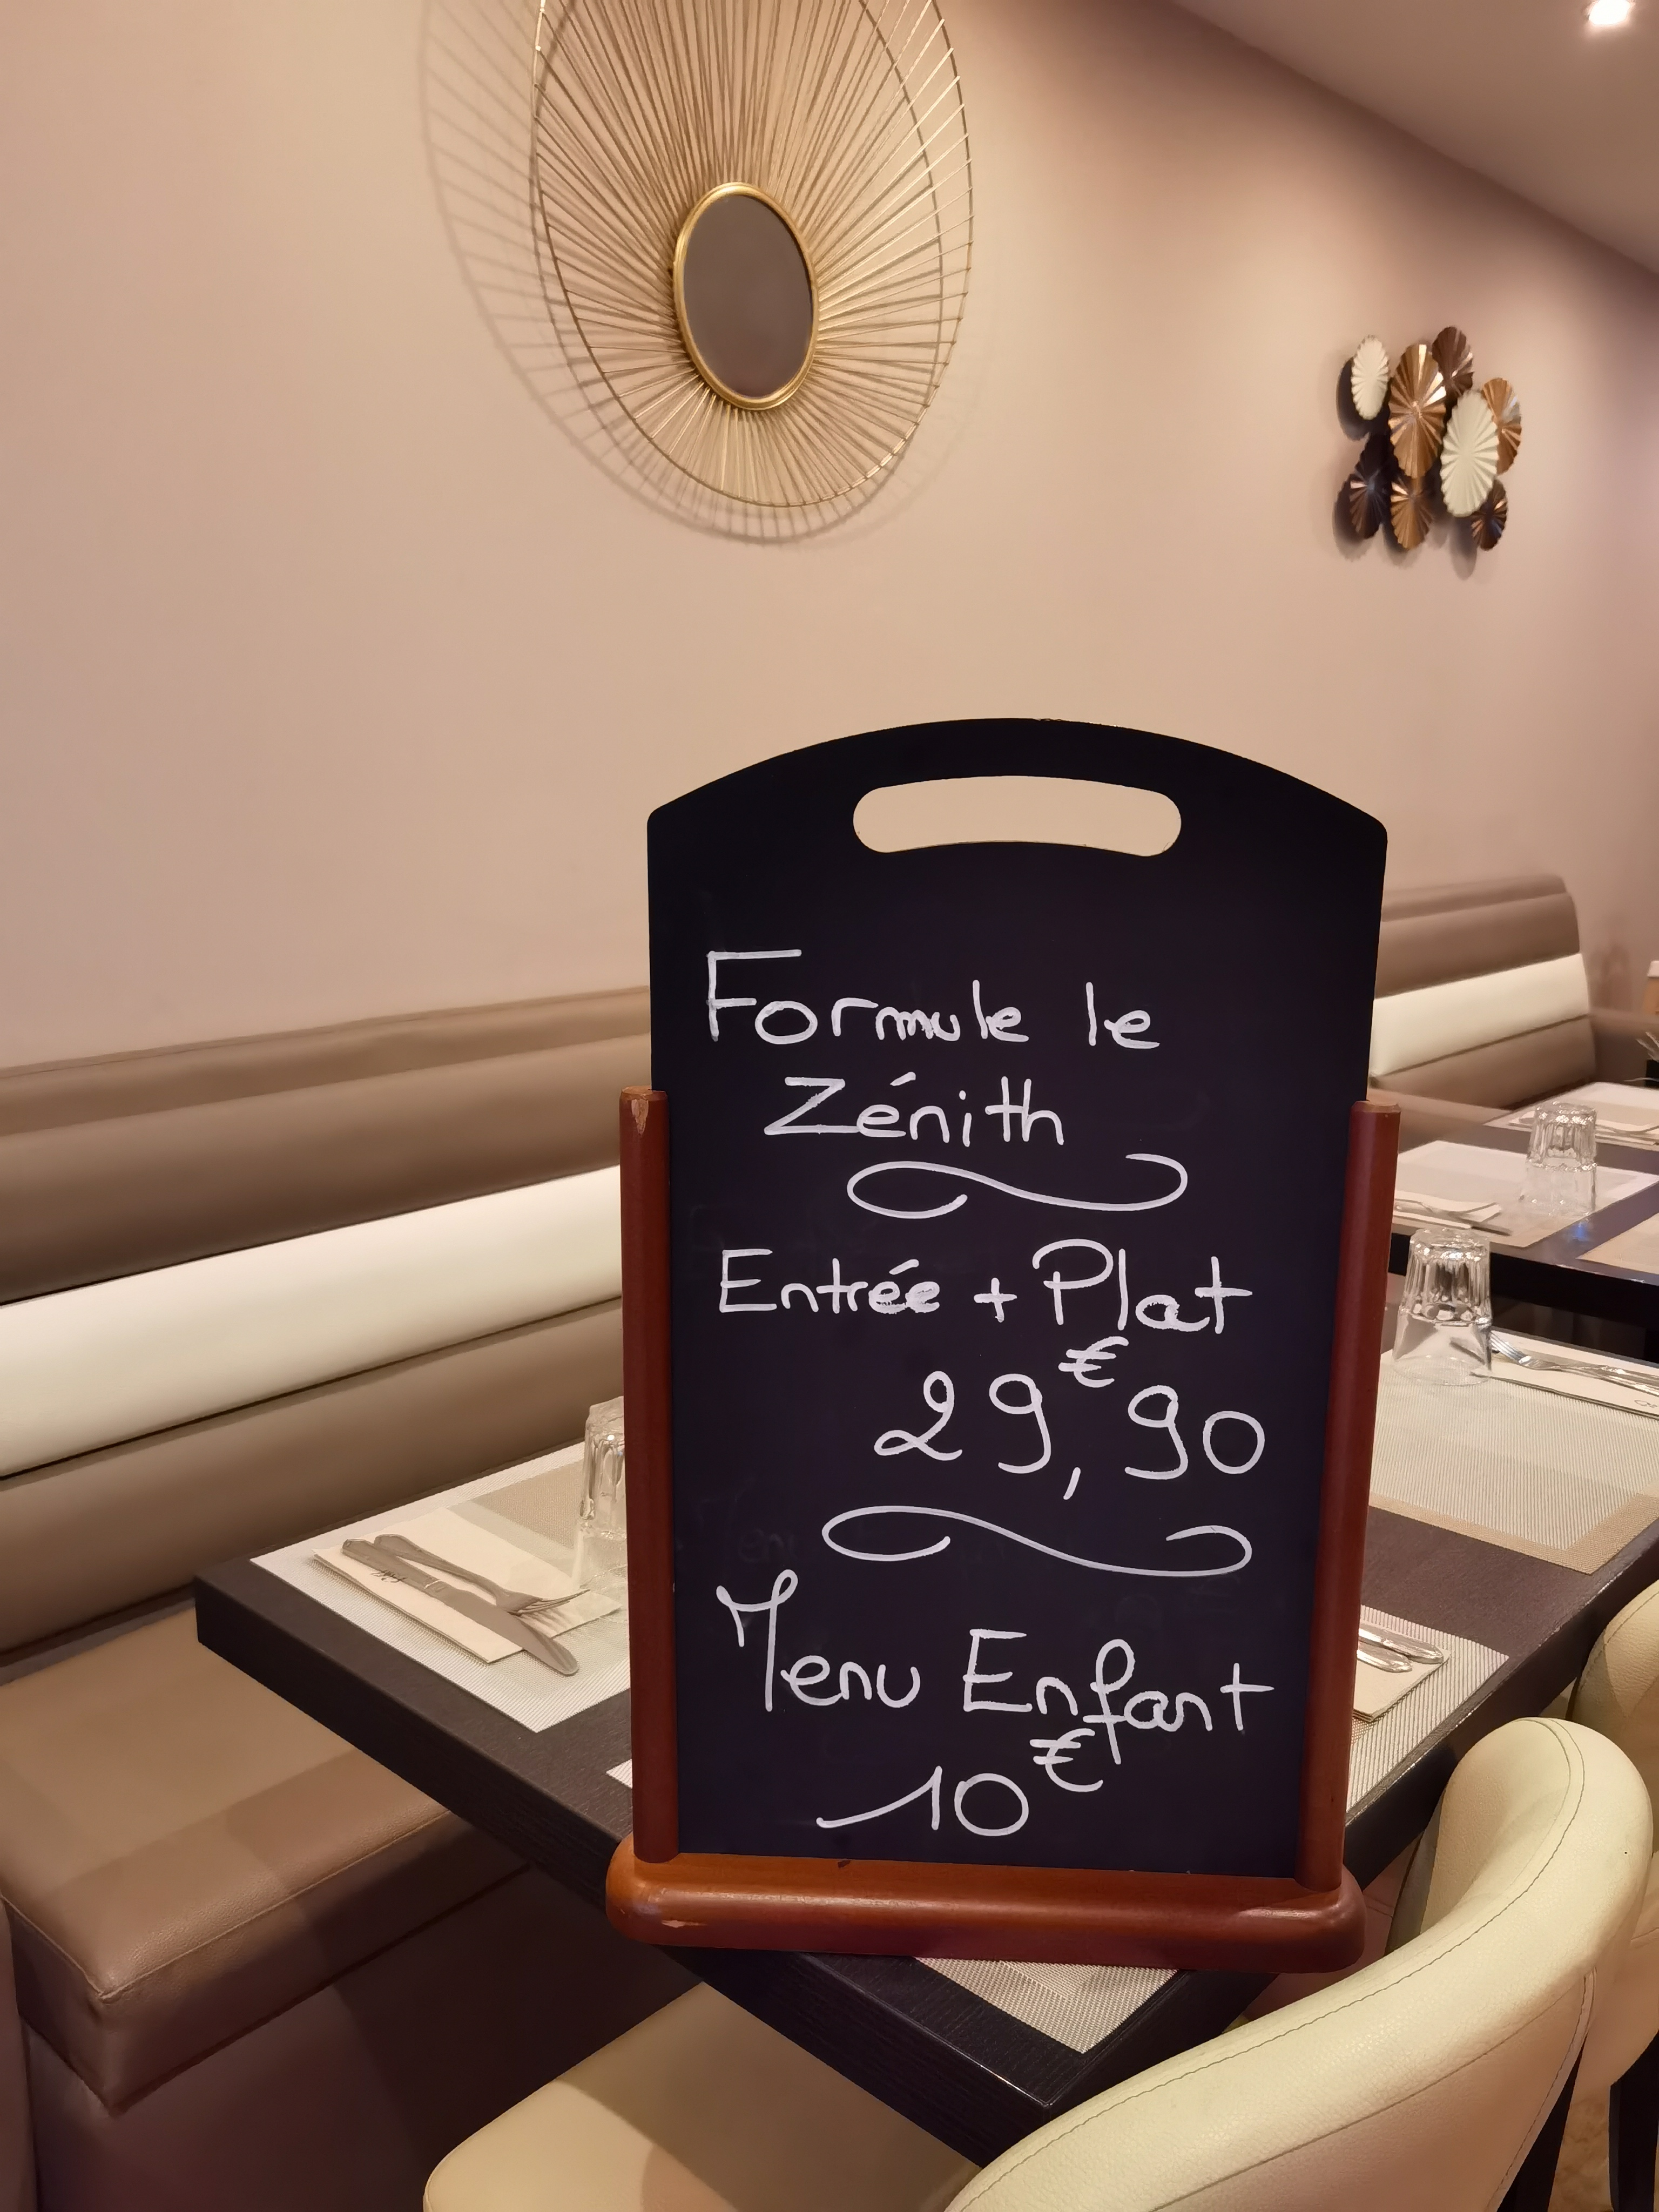 Formule le
Zénith
Entrée + Plat
29,€90
Menu Enfant
10€